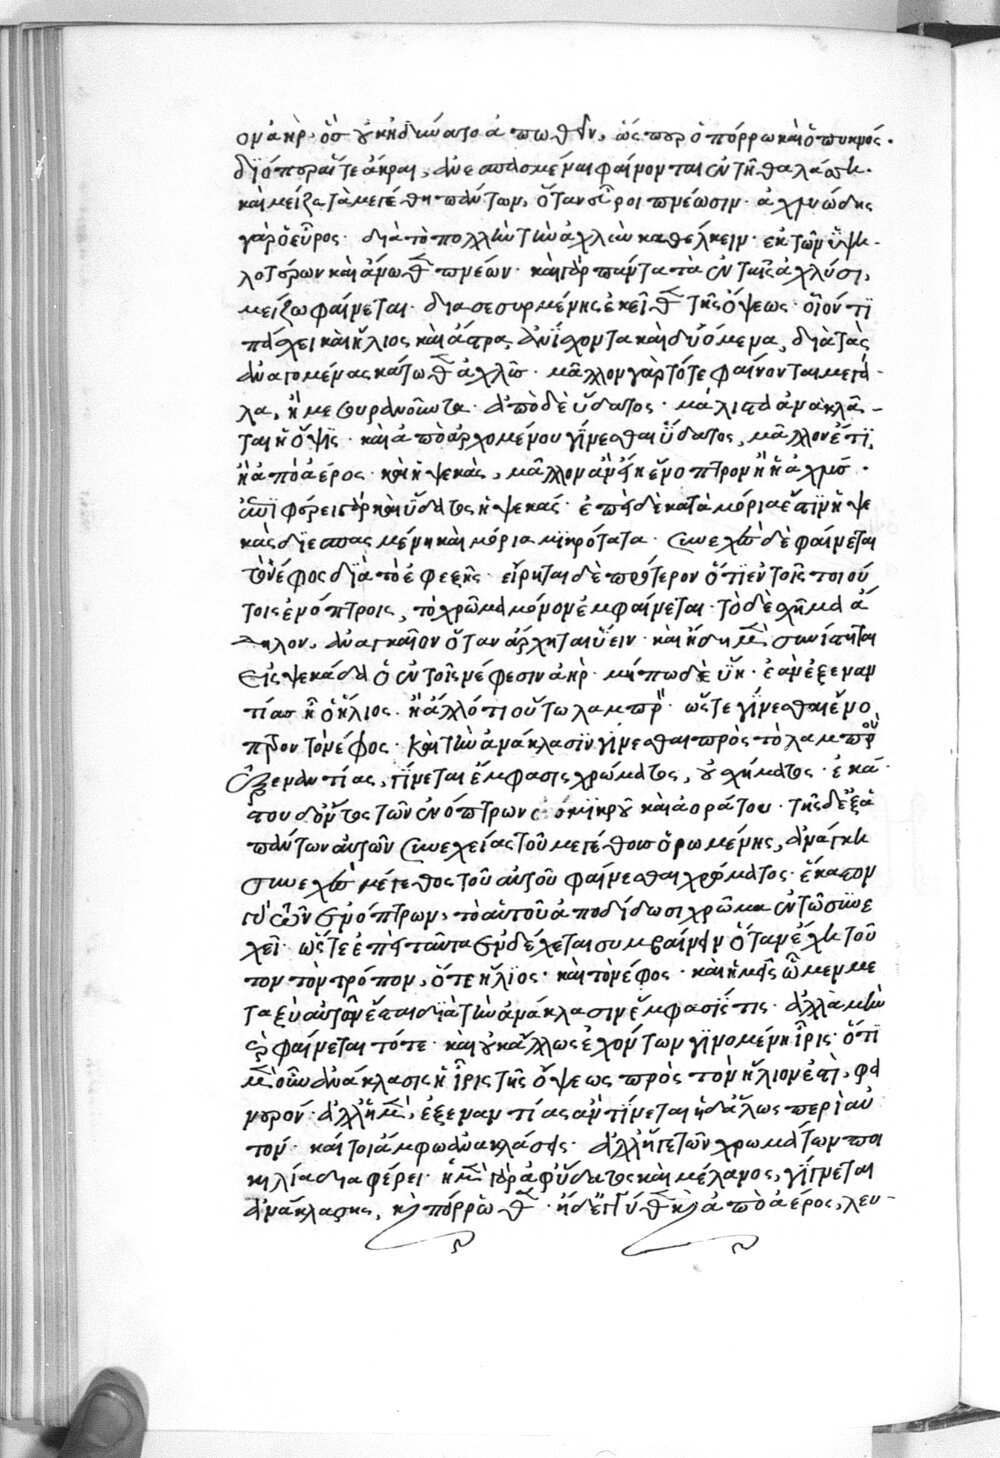 ὁ μἀὴρ· ὃσ οὐκ ἠδύνατο ἄπωθεν, ὥσπερ ὁ πόρρω καὶ ὁ πυκνός·
διόπερ αἵ τε ἄκραι, ἀνεσπασμέναι φαίνονται ἐν τῇ θαλάσσῃ·
καὶ μείζω τὰ μεγέθη πάντων, ὅταν εὖροι πνέωσιν· ἀχλυώδης
γὰρ ὁ εὖρος· διὰ τὸ πολλὴν τὴν ἀχλὺν καθέλκειν· ἐκ τῶν ὑψη-
λοτέρων καὶ ἄνωθεν πνέων· καὶ γὰρ πάντα τὰ ἐν ταῖς ἀχλύσι,
μείζω φαίνεται· διασεσυρμένης ἐκεῖθεν τῆς ὄψεως· οἷόν τι
πάσχει καὶ ἥλιος, καὶ ἄστρα, ἀνίσχοντα καὶ δυόμενα, διὰ τὰς
ἀναγομένας κάτωθεν ἀχλῦς· μᾶλλον γὰρ τότε φαίνονται μεγά-
λα, ἢ μεσουρανοῦντα· ἀπὸ δὲ ὕδατος· μάλιστα ἀνακλᾶ-
ται ἡ ὄψις· καὶ ἀπὸ ἀρχομένου γίνεσθαι ὕδατος, μᾶλλον ἔτι,
ἢ ἀπὸ ἀέρος· καὶ ἡ ψεκὰς, μᾶλλον ἂν εἴη ἔνοπτρον ἢ ἡ ἀχλύς·
φέρει γὰρ καὶ ὕδατος ἡ ψεκάς· ἐπεὶ δὲ κατὰ μόρια ἐστὶν ἡ ψε
κὰς διεσπασμένη καὶ μόρια μικρότατα· συνεχὲς δὲ φαίνεται
τὸ νέφος διὰ τὸ ἐφεξῆς· εἴρηται δὲ πρότερον ὅτι ἐν τοῖς τοιού
τοις ἐνόπτροις, τὸ χρῶμα μόνον ἐμφαίνεται· τὸ δὲ σχῆμα ἄ
δηλον, ἀναγκαῖον ὅταν ἄρχηται ὕειν· καὶ ἤδη μὲν συνίστηται
εἰς ψεκάδα ὁ ἐν τοῖς νέφεσιν ἀὴρ· μήπω δὲ ὕῃ· ἐὰν ἐξεναν
τίας ᾖ ὁ ἥλιος· ἢ ἄλλό τι οὕτω λαμπρὸν· ὥστε γίνεσθαι ἔνο
πτρον τὸ νέφος· καὶ τὴν ἀνάκλασιν γίνεσθαι πρὸς τὸ λαμπρὸν
ἐξεναντίας, γίνεται ἔμφασις χρώματος, οὐ σχήματος· ἑκά
στου δ' ὄντος τῶν ἐνόπτρων μικροῦ καὶ ἀοράτου· τῆς δ' ἐξ ἁ
πάντων αὐτῶν συνεχείας τοῦ μεγέθους ὁρωμένης, ἀνάγκη
συνεχὲς μέγεθος τοῦ αὐτοῦ φαίνεσθαι χρώματος· ἕκαστον
γὰρ τῶν ἐνόπτρων, τὸ αὐτοῦ ἀποδίδωσι χρῶμα ἐν τῷ συνε
χεῖ· ὥστε ἐπεὶ ταῦτα ἐνδέχεται συμβαίνειν ὅταν ἔχῃ τοῦ
τον τὸν τρόπον, ὅτε ἥλιος· καὶ τὸ νέφος· καὶ ἡμεῖς ὦμεν με
ταξὺ αὐτῶν ἔσται διὰ τὴν ἀνάκλασιν ἔμφασίς τις· ἀλλὰ μὴν
φαίνεται τότε· καὶ οὐκ ἄλλως ἐχόντων γινομένη ἶρις· ὅτι
μὲν οὖν ἀνάκλασις ἡ ἶρις τῆς ὄψεως πρὸς τὸν ἥλιον ἐστὶ, φα
νερόν· ἀλλ' ἡ μὲν, ἐξεναντίας ἀν γίνεται ἡ δ' ἅλως περὶ αὐ
τόν· καί τοι ἄμφω ἀνακλάσεις· ἀλλ' ἥ γε τῶν χρωμάτων ποι
κιλία διαφέρει· ἡ μὲν γὰρ ἀφ' ὕδατος καὶ μέλανος, γίγνεται
ἀνάκλασης, καὶ πόρρωθεν· ἡ δ' ἐγγύθεν καὶ ἀπὸ ἀέρος, λευ-